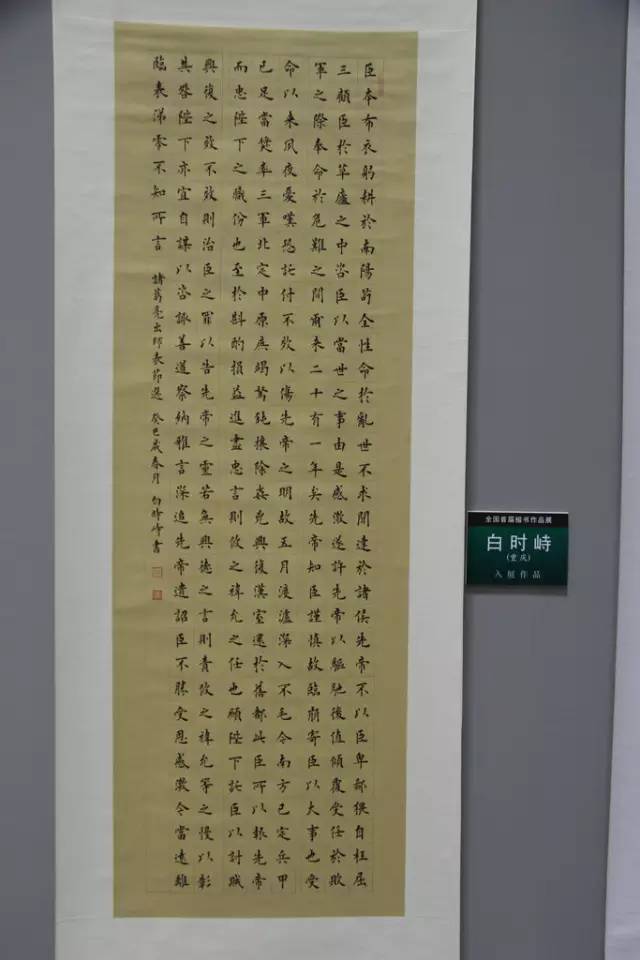 臣本布衣躬耕於南陽苟全性命於亂世不求聞達於諸侯先帝不以臣卑鄙猥自枉屈
三顧臣於草廬之中咨臣以當世之事由是感激遂許先帝以驅馳後值傾覆受任於敗
軍之際奉命於危難之間爾來二十有一年矣先帝知臣謹慎故臨崩寄臣以大事也受
命以來夙夜憂嘆恐託付不效以傷先帝之明故五月渡瀘深入不毛今南方已定兵甲
已足當獎率三軍北定中原庶竭駑鈍攘除姦兇興復漢室還於舊都此臣所以報先帝
而忠陛下之職份也至於斟酌損益進盡忠言則攸之禕允之任也願陛下託臣以討賊
興復之效不效則治臣之罪以告先帝之靈若無興德之言則責攸之禕允等之慢以彰
其咎陛下亦宜自謀以咨諏善道察納雅言深追先帝遺詔臣不勝受恩感激今當遠離
臨表涕零不知所言 諸葛亮出師表節選 癸巳歲春月 白時峙書
全国首届楷书作品展
白时峙
(重庆)
入展作品